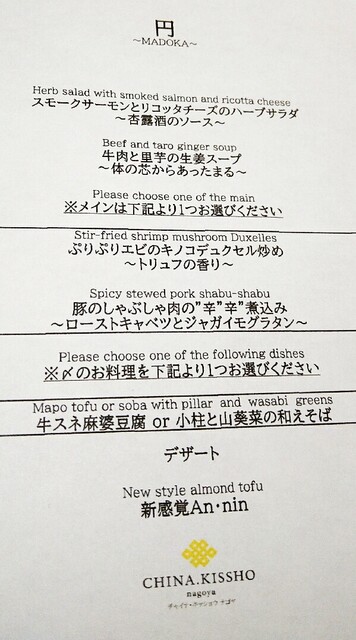 円
～MADOKA～
Herb salad with smoked salmon and ricotta cheese
スモークサーモンとリコッタチーズのハーブサラダ
～杏露酒のソース～
Beef and taro ginger soup
牛肉と里芋の生姜スープ
～体の芯からあったまる～
Please choose one of the main
※メインは下記より1つお選びください
Stir-fried shrimp mushroom Duxelles
ぷりぷりエビのキノコデュクセル炒め
～トリュフの香り～
Spicy stewed pork shabu-shabu
豚のしゃぶしゃぶ肉の"辛"辛"煮込み
～ローストキャベツとジャガイモグラタン～
Please choose one of the following dishes
※〆のお料理を下記より1つお選びください
Mapo tofu or soba with pillar and wasabi greens
牛スネ麻婆豆腐 or 小柱と山葵菜の和えそば
デザート
New style almond tofu
新感覚An・nin
CHINA.KISSHO
nagoya
チャイナ・キッショウ ナゴヤ